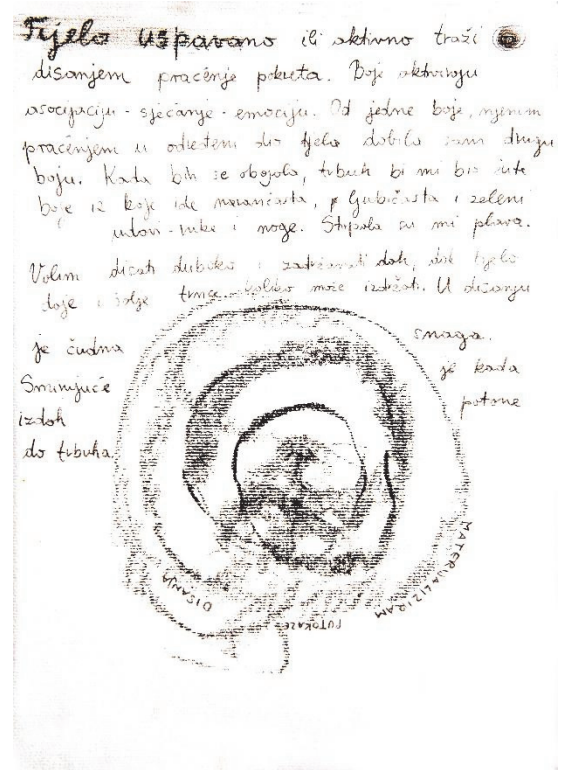 Tijelo uspavano ili aktivno traži
disanjem praćenje pokreta. Boje aktiviraju
asocijaciju - sjećanje - emociju. Od jedne boje, njenim
praćenjem u određeni dio tijela dobila sam drugu
boju. Kada bih se obojala, trbuh bi mi bio žute
boje iz koje ide narančasta, ljubičasta i zeleni
udovi - ruke i noge. Stopala su mi plava.
Volim disati duboko i zadržavati dah, dok tijelo
koliko može izdržati. U disanju
je čudna snaga.
Smirujuće je kada
izdah potone
do trbuha.
MATERIJALIZIRAM
PUTOKAZE
DISANJA